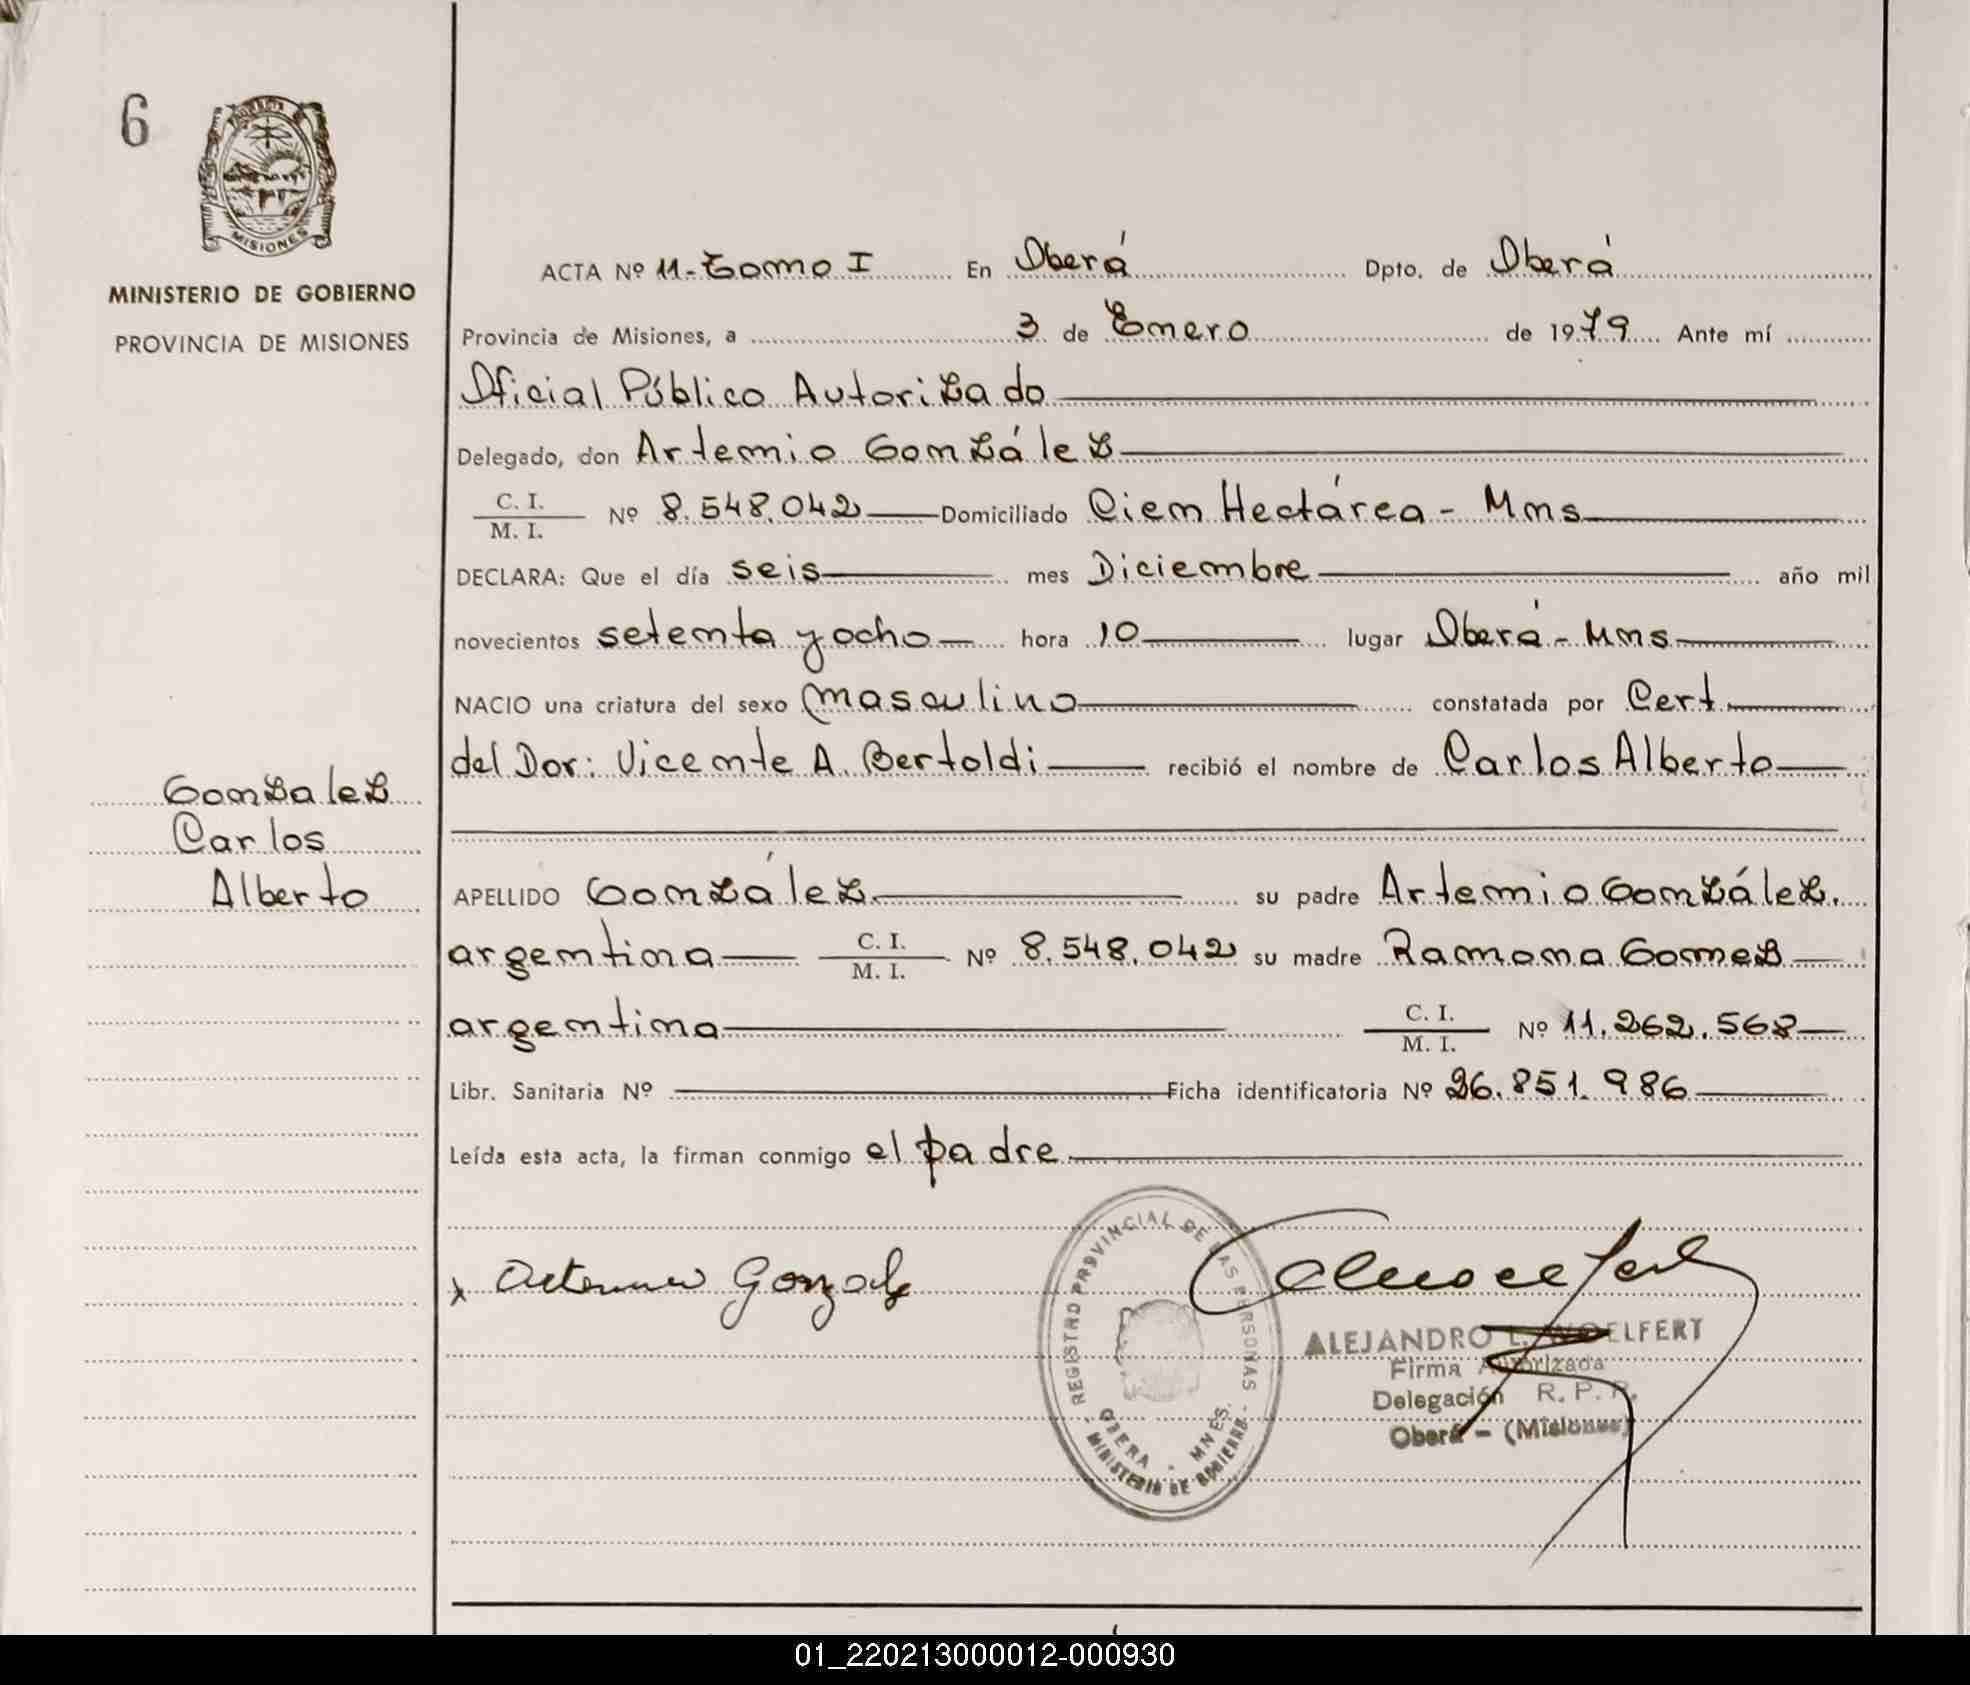 6
MISIONES
MINISTERIO DE GOBIERNO
PROVINCIA DE MISIONES
ACTA Nº 11-Tomo I En Oberá Dpto. de Oberá
Provincia de Misiones, a 3 de Enero de 1979 Ante mí
Oficial Público Autorizado
Delegado, don Artemio González
C. I.
M. I.
Nº 8.548.042 Domiciliado Cien Hectárea - Mnes
DECLARA: Que el día seis mes Diciembre año mil
novecientos setenta y ocho hora 10 lugar Oberá - Mnes
NACIO una criatura del sexo masculino constatada por Cert
del Dor: Vicente A. Bertoldi recibió el nombre de Carlos Alberto
Gonzalez
Carlos
Alberto
APELLIDO González su padre Artemio González.
argentina C. I.
M. I.
Nº 8.548.042 su madre Ramona Gomez
argentina C. I.
M. I.
Nº 11.262.568
Libr. Sanitaria Nº Ficha identificatoria Nº 26.851.986
Leída esta acta, la firman conmigo el padre
x Gonzalez
REGISTRO PROVINCIAL DE LAS PERSONAS
OBERA - MNES.
MINISTERIO DE GOBIERNO
ALEJANDRO L. WOELFERT
Firma Autorizada
Delegación R. P. P.
Oberá - (Misiones)
01_220213000012-000930